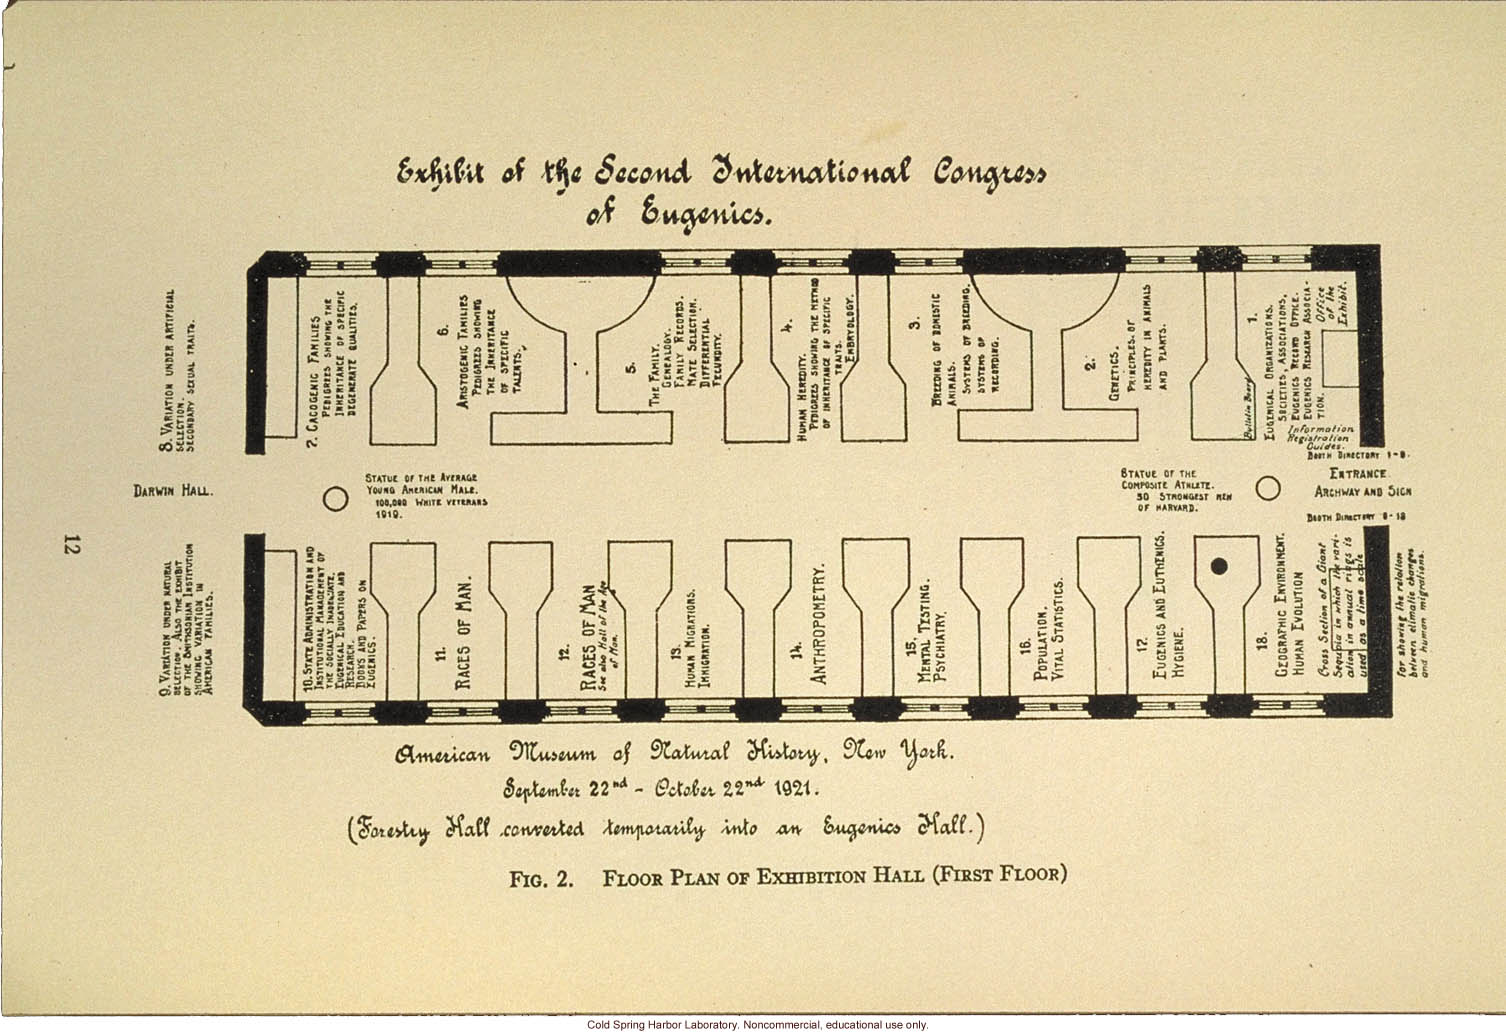 Exhibit of the Second International Congress
of Eugenics.
8. VARIATION UNDER ARTIFICIAL
SELECTION.
SECONDARY SEXUAL TRAITS.
7. CACOGENIC FAMILIES
PEDIGREES SHOWING THE
INHERITANCE OF SPECIFIC
DEGENERATE QUALITIES.
6.
ARISTOGENIC FAMILIES
PEDIGREES SHOWING
THE INHERITANCE
OF SPECIFIC
TALENTS.
5.
THE FAMILY.
GENEALOGY.
FAMILY RECORDS.
MATE SELECTION.
DIFFERENTIAL
FECUNDITY.
4.
HUMAN HEREDITY.
PEDIGREES SHOWING THE METHOD
OF INHERITANCE OF SPECIFIC
TRAITS.
EMBRYOLOGY.
3.
BREEDING OF DOMESTIC
ANIMALS.
SYSTEMS OF BREEDING.
SYSTEMS OF
RECORDING.
2.
GENETICS.
PRINCIPLES OF
HEREDITY IN ANIMALS
AND PLANTS.
1.
Bulletin Board
EUGENICAL ORGANIZATIONS.
SOCIETIES, ASSOCIATIONS,
EUGENICS RECORD OFFICE.
EUGENICS RESEARCH ASSOCIA-
TION.
Office
of the
Exhibit.
Information
Registration
Guides.
BOOTH DIRECTORY 1-8.
DARWIN HALL.
STATUE OF THE AVERAGE
YOUNG AMERICAN MALE.
100,000 WHITE VETERANS
1919.
STATUE OF THE
COMPOSITE ATHLETE.
50 STRONGEST MEN
OF HARVARD.
ENTRANCE.
ARCHWAY AND SIGN
BOOTH DIRECTORY 9-18
12
9. VARIATION UNDER NATURAL
SELECTION. ALSO THE EXHIBIT
OF THE SMITHSONIAN INSTITUTION
SHOWING VARIATION IN
AMERICAN FAMILIES.
10. STATE ADMINISTRATION AND
INSTITUTIONAL MANAGEMENT OF
THE SOCIALLY INADEQUATE.
EUGENICAL EDUCATION AND
RESEARCH.
BOOKS AND PAPERS ON
EUGENICS.
11.
RACES OF MAN.
12.
RACES OF MAN
See also Hall of the Age
of Man.
13.
HUMAN MIGRATIONS.
IMMIGRATION.
14.
ANTHROPOMETRY.
15.
MENTAL TESTING.
PSYCHIATRY.
16.
POPULATION.
VITAL STATISTICS.
17.
EUGENICS AND EUTHENICS.
HYGIENE.
18.
GEOGRAPHIC ENVIRONMENT.
HUMAN EVOLUTION
Cross Section of a Giant
Sequoia in which the vari-
ation in annual rings is
used as a time scale
for showing the relation
between climatic changes
and human migrations.
American Museum of Natural History, New York.
September 22nd - October 22nd 1921.
(Forestry Hall converted temporarily into an Eugenics Hall.)
FIG. 2. FLOOR PLAN OF EXHIBITION HALL (FIRST FLOOR)
Cold Spring Harbor Laboratory. Noncommercial, educational use only.